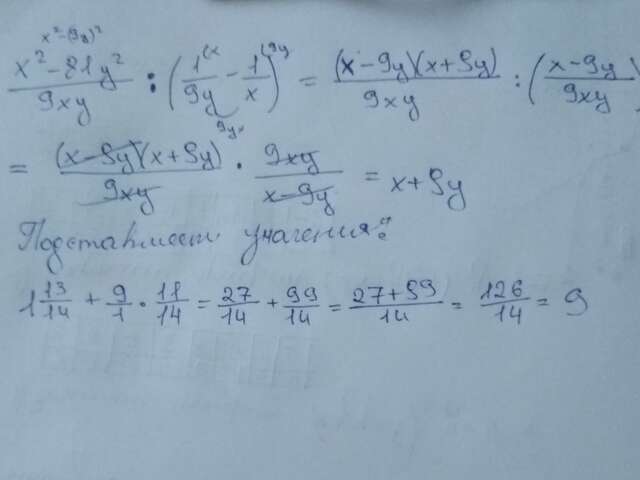 x²-(9y)²
(x² - 81y²)/(9xy) : (1^(x/(9y) - 1^(9y/x) = ((x - 9y)(x + 9y))/(9xy) : ((x - 9y)/(9xy)
9yx
= ((x - 9y)(x + 9y))/(9xy) · (9xy)/(x - 9y) = x + 9y
Подставляем значения:
1 13/14 + 9/1 · 11/14 = 27/14 + 99/14 = (27 + 99)/14 = 126/14 = 9